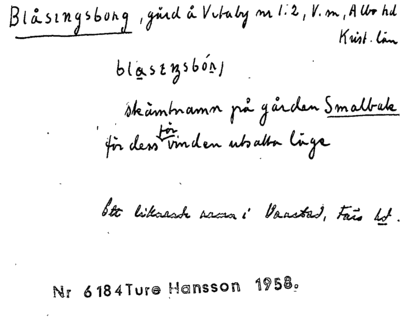 Blåsingsborg, gård å Vitaby nr 1:2, V. m, Albo hd
Krist. län
skämtnamn på gården Smalbak
för dess för vinden utsatta läge
Ett liknande namn i Vanstad, Färs hd.
Nr 6184 Ture Hansson 1958.